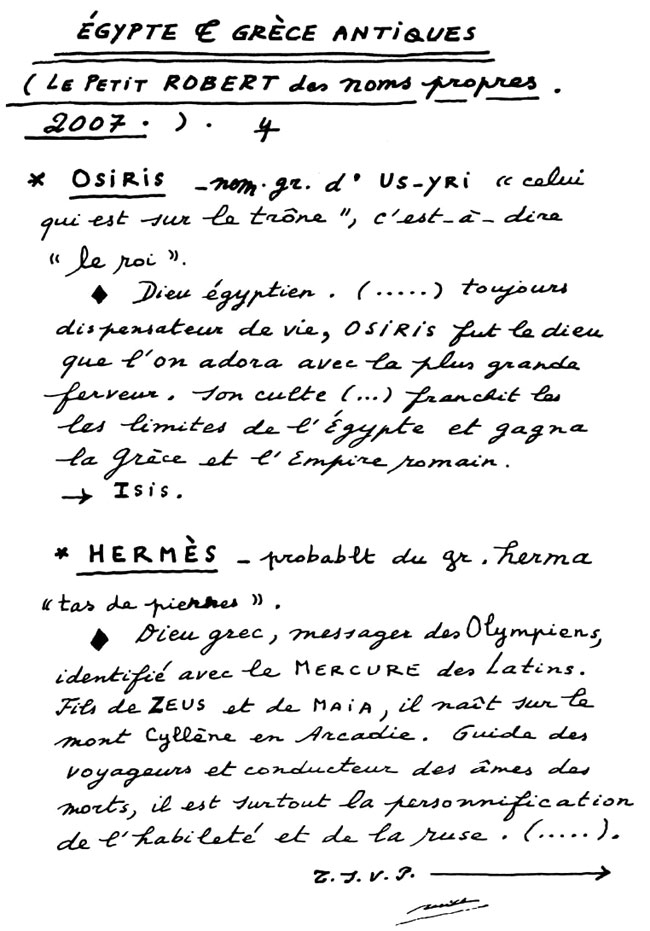 ÉGYPTE & GRÈCE ANTIQUES
(LE PETIT ROBERT des noms propres.
2007.). 4
* OSIRIS - nom. gr. d' US-YRI « celui
qui est sur le trône ", c'est-à-dire
" le roi ".
♦ Dieu égyptien. (.....) toujours
dispensateur de vie, OSIRIS fut le dieu
que l'on adora avec la plus grande
ferveur. Son culte (...) franchit les
les limites de l'Égypte et gagna
la Grèce et l'Empire romain.
→ Isis.
* HERMÈS - probablt du gr. herma
" tas de pierres ".
♦ Dieu grec, messager des Olympiens,
identifié avec le MERCURE des Latins.
Fils de ZEUS et de MAIA, il naît sur le
mont Cyllène en Arcadie. Guide des
voyageurs et conducteur des âmes des
morts, il est surtout la personnification
de l'habileté et de la ruse. (.....).
T.S.V.P. →